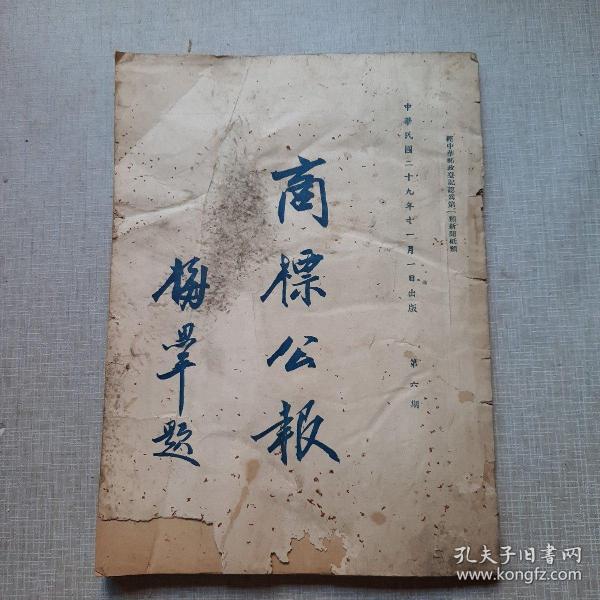 經中華郵政登記認爲第一類新聞紙類
中華民國二十九年十一月一日出版 第六期
商標公報
梅思平題
孔夫子旧书网
www.kongfz.com